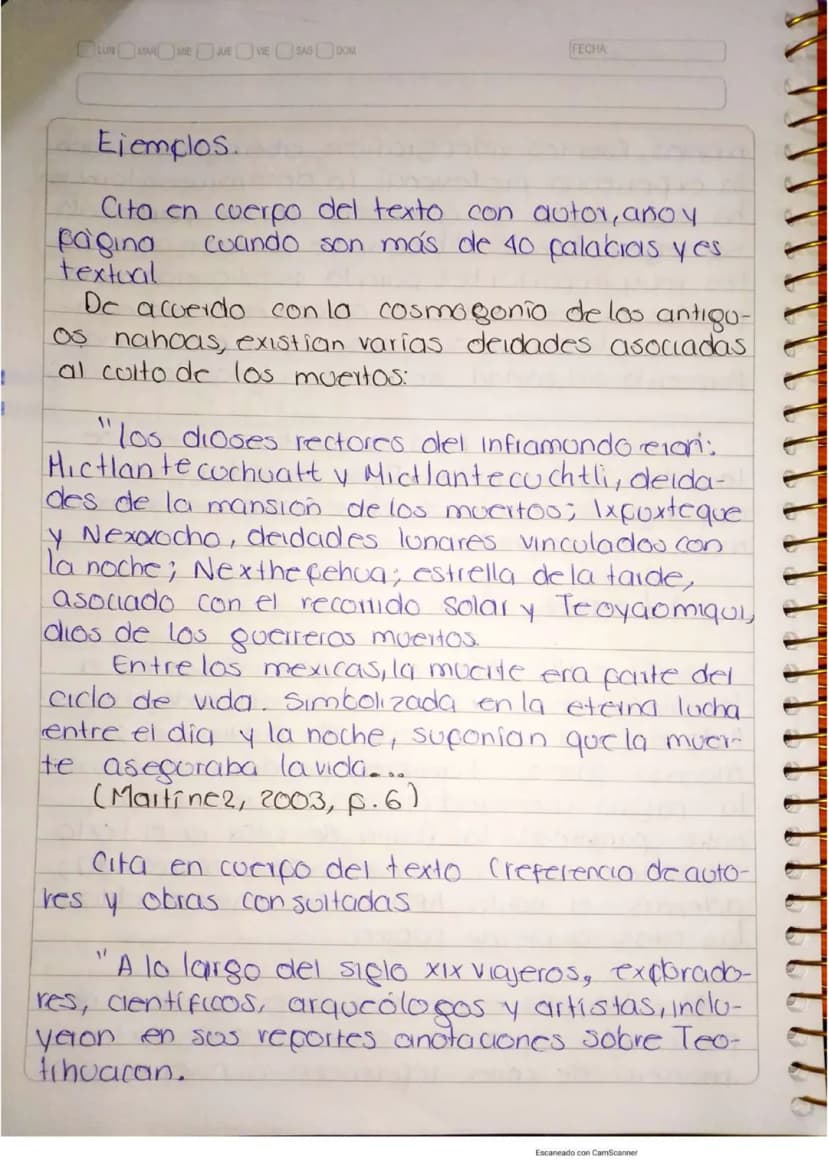 LUN MAR MIE JUE VIE SAB DOM
FECHA
Ejemplos.
Cita en cuerpo del texto con autor, año y
página cuando son más de 40 palabras y es
textual
De acuerdo con la cosmogonío de los antigu-
os nahoas, existian varías deidades asociadas
al culto de los muertos:
"los dioses rectores del inframundo eran:
Mictlantecochuatt y Mictlantecuchtli, deida-
des de la mansión de los muertos; Ixpuxteque
y Nexoxocho, deidades lunares vinculados con
la noche; Nexthepehua; estrella de la tarde,
asociado con el recorrido solar y Teoyaomiqui,
dios de los guerreros muertos.
Entre los mexicas, la muerte era parte del
ciclo de vida. Simbolizada en la eterna lucha
entre el día y la noche, suponían que la muer-
te aseguraba la vida...
(Martínez, 2003, p.6)
Cita en cuerpo del texto (referencia de auto-
res y obras consultadas
"A lo largo del siglo XIX viajeros, explorado-
res, científicos, arqueólogos y artistas, inclu-
yeron en sus reportes anotaciones sobre Teo-
tihuacan.
Escaneado con CamScanner